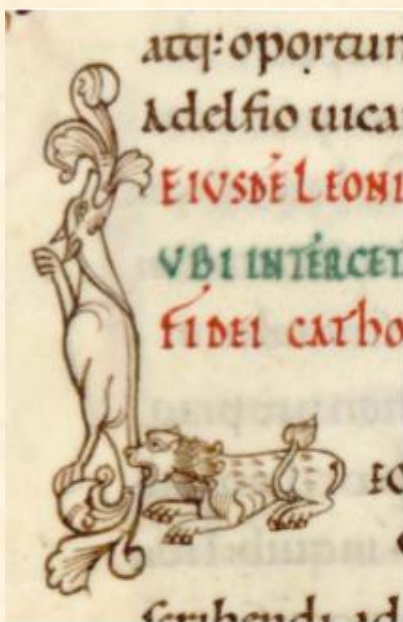 atq: oportun
Adelfio uica
EIUSDE LEONI
UBI INTERCET
FIDEI CATHO
EO
scribendi ad